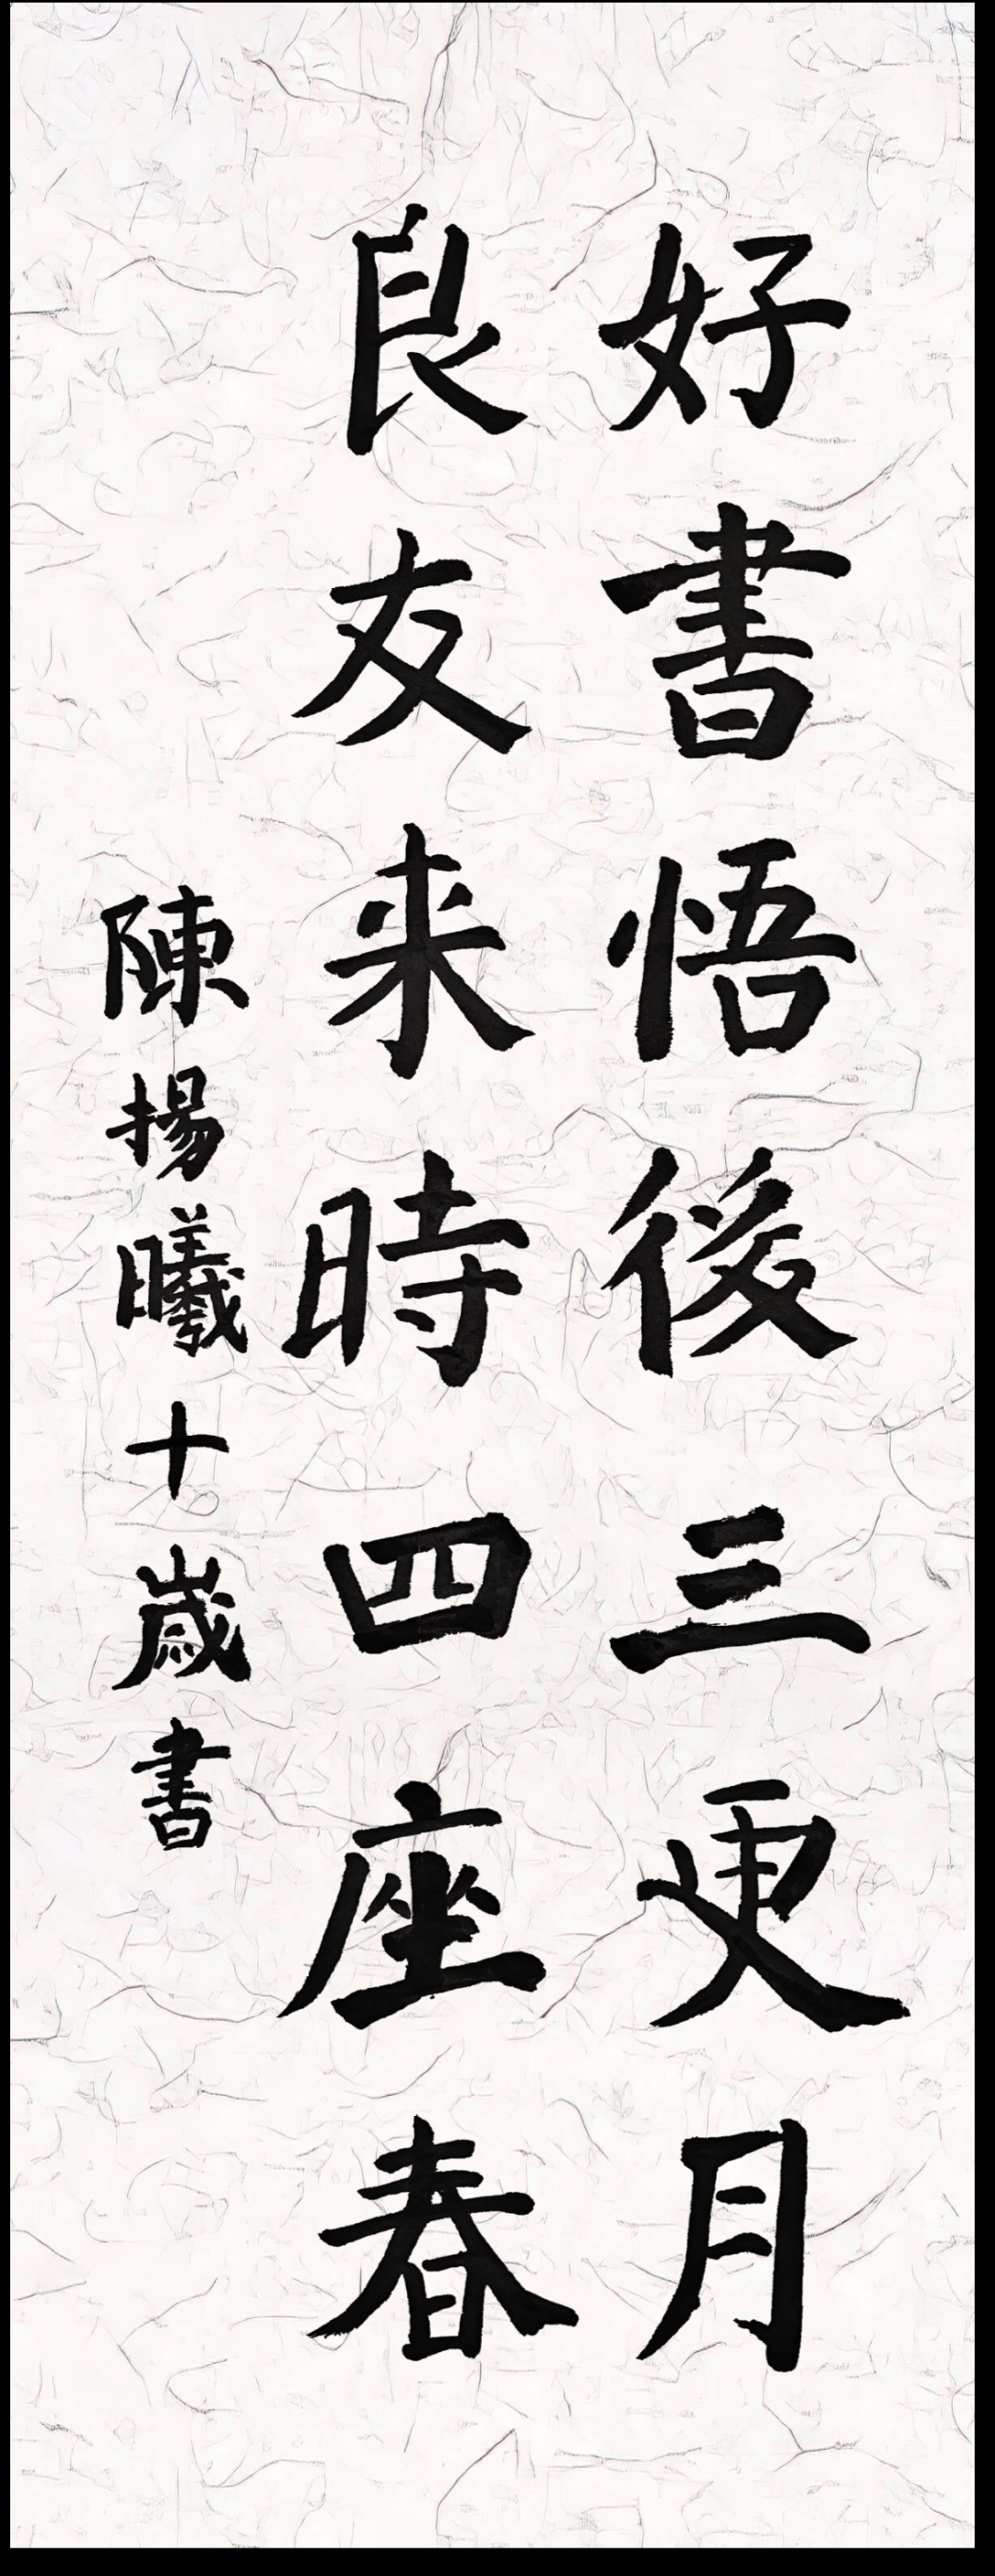 好書悟後三更月
良友来時四座春
陳揚曦十歲書